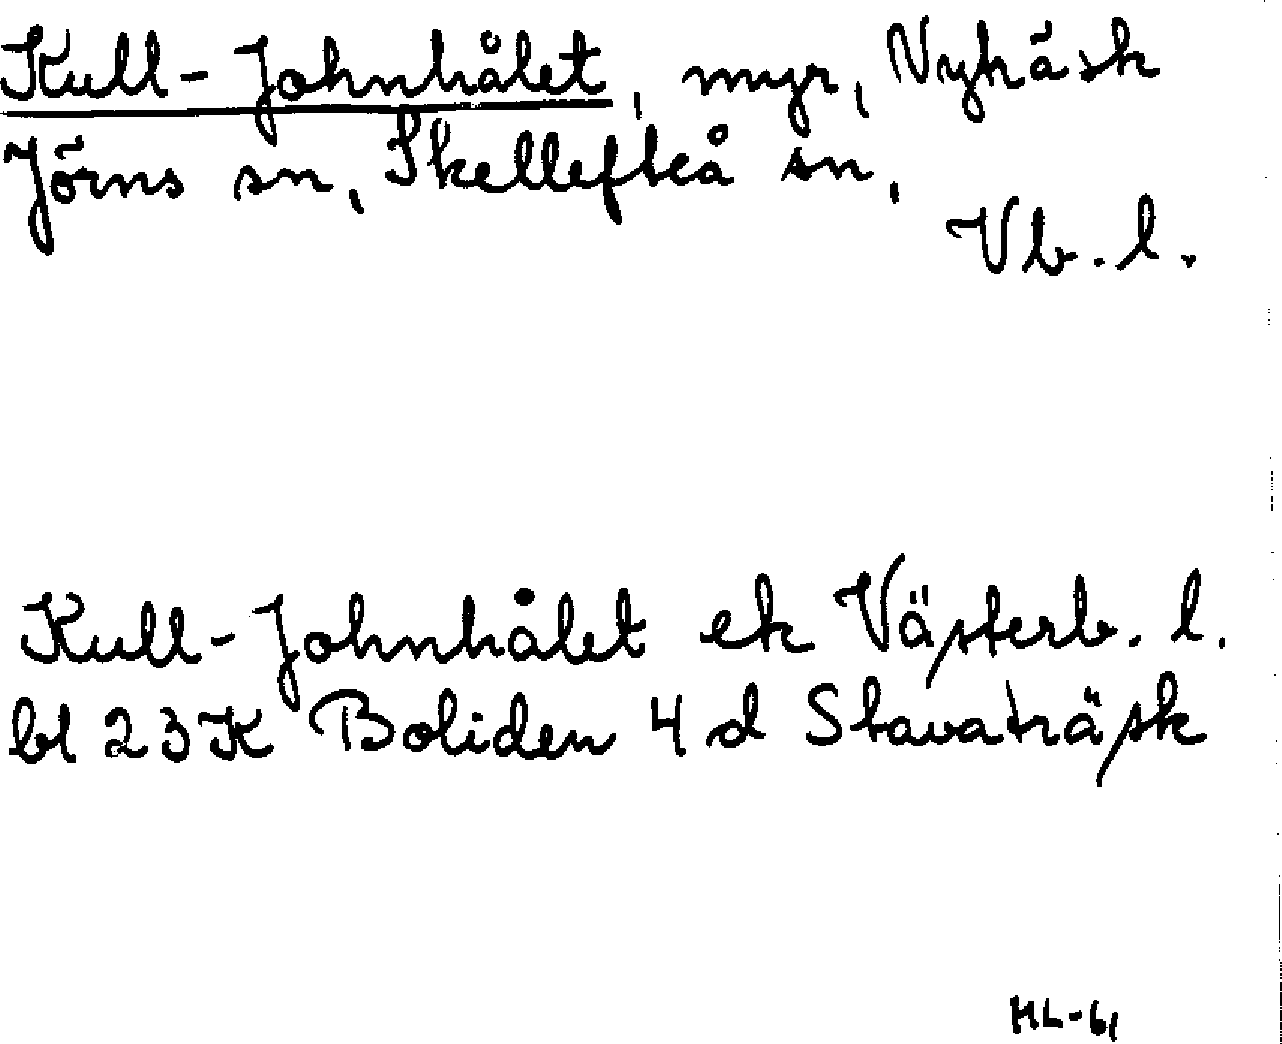 Kull-Johnhålet, myr, Nyträsk
Jörns sn, Skellefteå sn,
Vb. l.
Kull-Johnhålet ek Västerb. l.
bl 23K Boliden 4 d Stavaträsk
HL-61